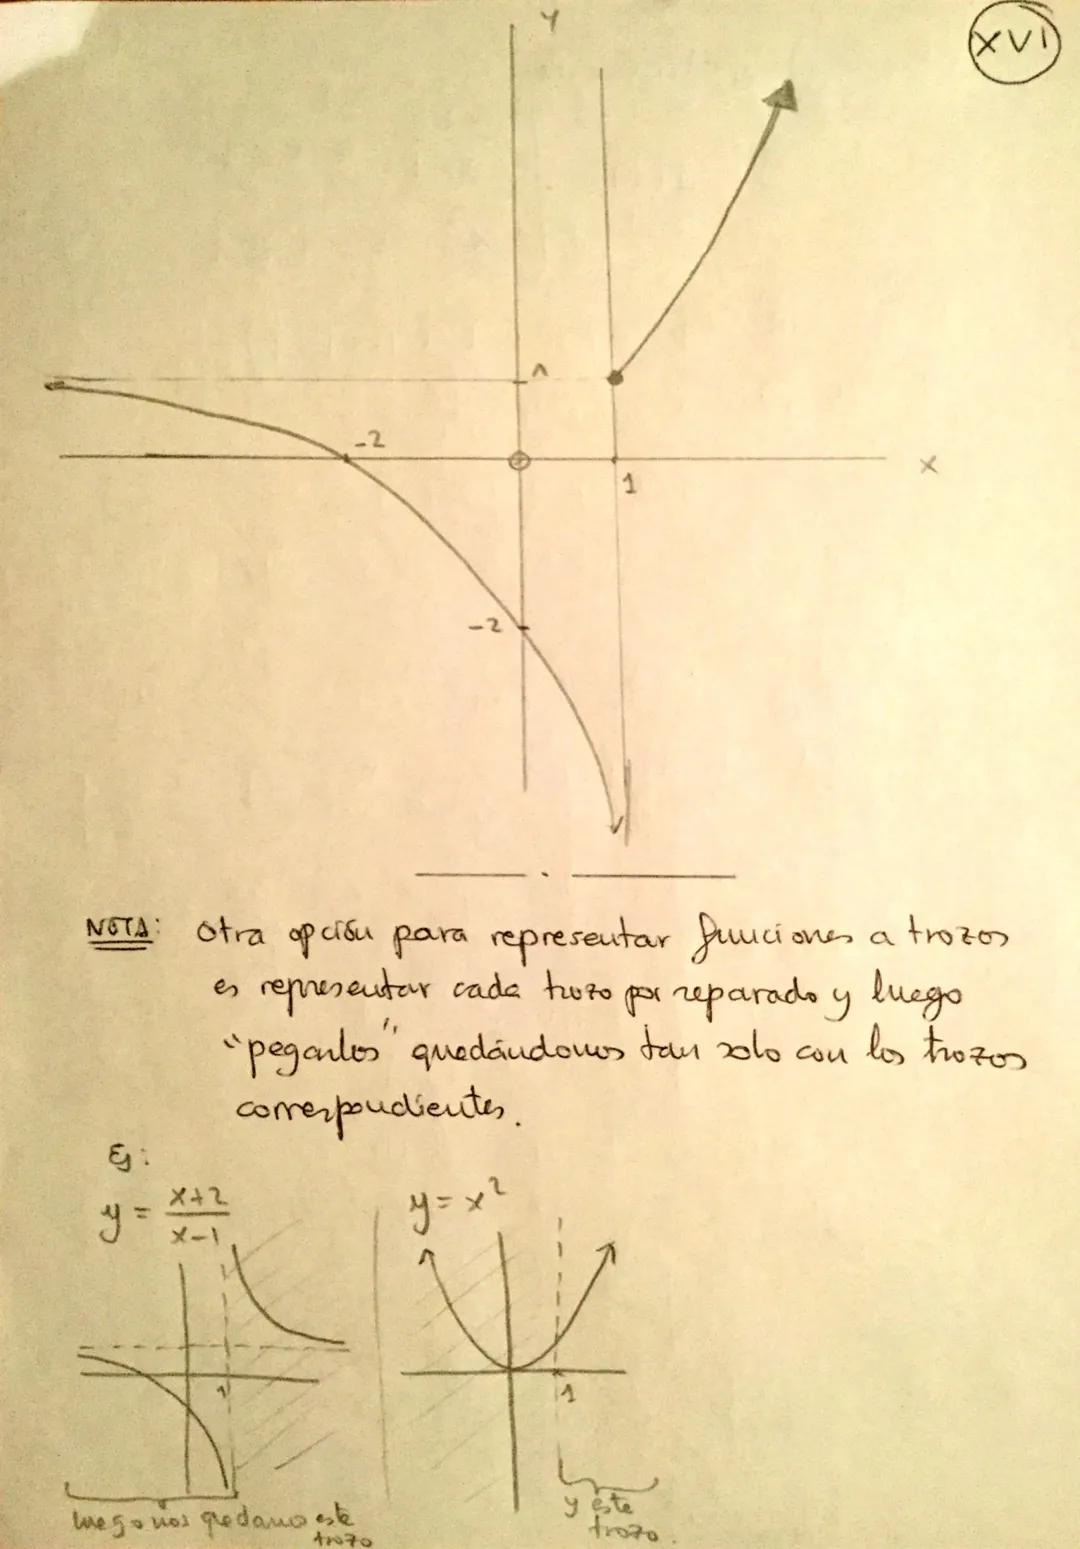 XVI
Y
1
-2
X
1
-2
NOTA: Otra opción para representar funciones a trozos
es representar cada trozo por separado y luego
"pegarlos", quedándonos tan solo con los trozos
correspondientes.
Ej:
y = x+2 / x-1
y = x²
1
1
luego nos quedamos este
trozo
y este
trozo.